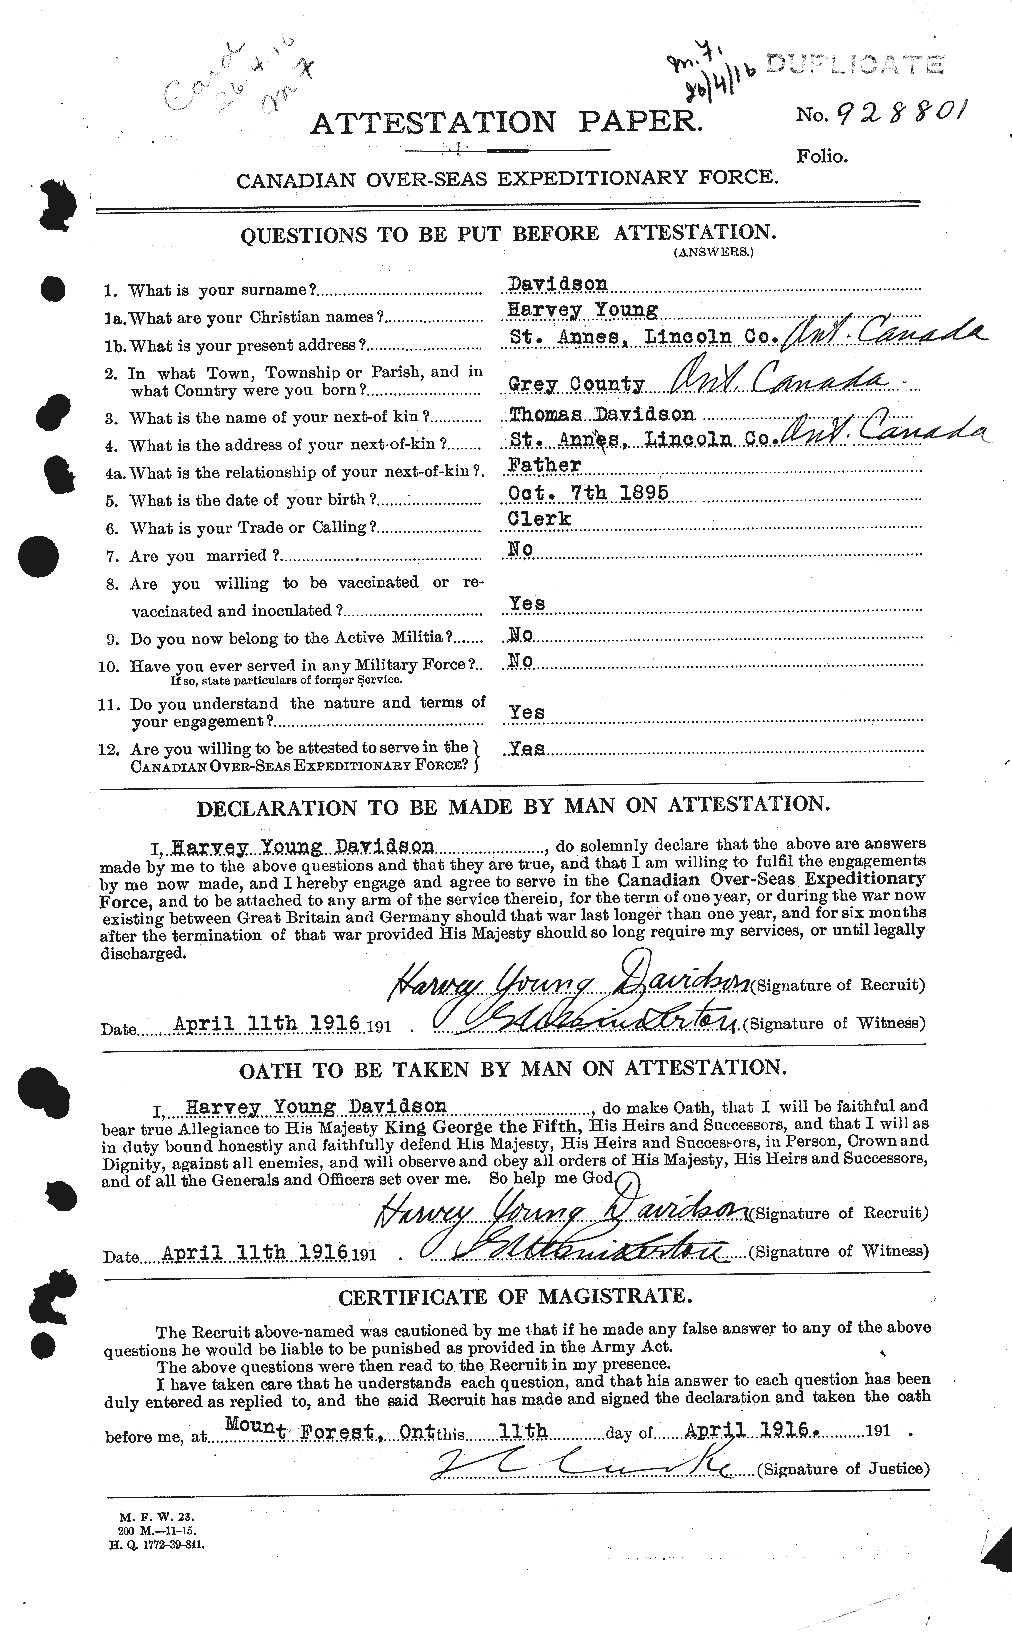 Card
26.X.16
m X
M.F.
26/4/16
DUPLICATE
ATTESTATION PAPER.
No. 928801
Folio.
CANADIAN OVER-SEAS EXPEDITIONARY FORCE.
QUESTIONS TO BE PUT BEFORE ATTESTATION.
(ANSWERS.)
1. What is your surname? Davidson
1a. What are your Christian names? Harvey Young
1b. What is your present address? St. Annes, Lincoln Co. Ont. Canada
2. In what Town, Township or Parish, and in
what Country were you born? Grey County Ont. Canada
3. What is the name of your next-of kin? Thomas Davidson
4. What is the address of your next-of-kin? St. Annes, Lincoln Co. Ont. Canada
4a. What is the relationship of your next-of-kin? Father
5. What is the date of your birth? Oct. 7th 1895
6. What is your Trade or Calling? Clerk
7. Are you married? No
8. Are you willing to be vaccinated or re-
vaccinated and inoculated? Yes
9. Do you now belong to the Active Militia? No
10. Have you ever served in any Military Force? No
If so, state particulars of former Service.
11. Do you understand the nature and terms of
your engagement? Yes
12. Are you willing to be attested to serve in the
CANADIAN OVER-SEAS EXPEDITIONARY FORCE? Yes
DECLARATION TO BE MADE BY MAN ON ATTESTATION.
I, Harvey Young Davidson, do solemnly declare that the above are answers
made by me to the above questions and that they are true, and that I am willing to fulfil the engagements
by me now made, and I hereby engage and agree to serve in the Canadian Over-Seas Expeditionary
Force, and to be attached to any arm of the service therein, for the term of one year, or during the war now
existing between Great Britain and Germany should that war last longer than one year, and for six months
after the termination of that war provided His Majesty should so long require my services, or until legally
discharged.
Harvey Young Davidson (Signature of Recruit)
Date April 11th 1916 191 . (Signature of Witness)
OATH TO BE TAKEN BY MAN ON ATTESTATION.
I, Harvey Young Davidson, do make Oath, that I will be faithful and
bear true Allegiance to His Majesty King George the Fifth, His Heirs and Successors, and that I will as
in duty bound honestly and faithfully defend His Majesty, His Heirs and Successors, in Person, Crown and
Dignity, against all enemies, and will observe and obey all orders of His Majesty, His Heirs and Successors,
and of all the Generals and Officers set over me. So help me God.
Harvey Young Davidson (Signature of Recruit)
Date April 11th 1916 191 . (Signature of Witness)
CERTIFICATE OF MAGISTRATE.
The Recruit above-named was cautioned by me that if he made any false answer to any of the above
questions he would be liable to be punished as provided in the Army Act.
The above questions were then read to the Recruit in my presence.
I have taken care that he understands each question, and that his answer to each question has been
duly entered as replied to, and the said Recruit has made and signed the declaration and taken the oath
before me, at Mount Forest, Ont this 11th day of April 1916. 191 .
(Signature of Justice)
M. F. W. 23.
200 M.—11-15.
H. Q. 1772-39-841.